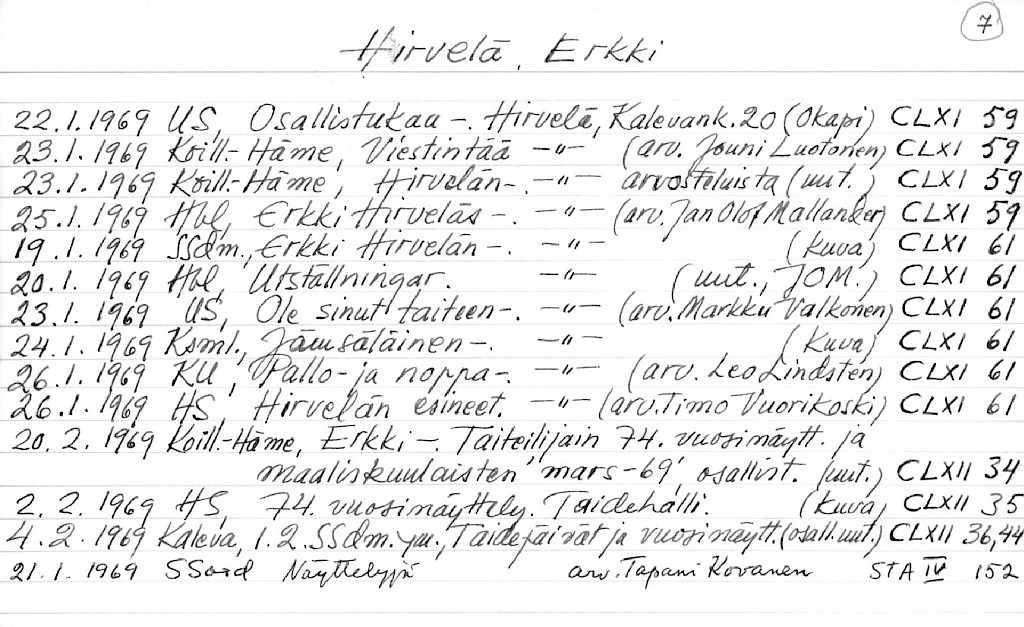 7
Hirvelä, Erkki
22.1.1969 US, Osallistukaa -. Hirvelä, Kalevank. 20 (Okapi) CLXI 59
23.1.1969 Koill.-Häme, Viestintää -"- (arv. Jouni Luotonen) CLXI 59
23.1.1969 Koill.-Häme, Hirvelän-. -"- arvosteluista (uut.) CLXI 59
25.1.1969 Hbl, Erkki Hirveläs -. -"- (arv. Jan Olof Mallander) CLXI 59
19.1.1969 SSdm., Erkki Hirvelän -. -"- (kuva) CLXI 61
20.1.1969 Hbl, Utställningar. -"- (uut., JOM.) CLXI 61
23.1.1969 US, Ole sinut taiteen -. -"- (arv. Markku Valkonen) CLXI 61
24.1.1969 Ksml., Jämsäläinen -. -"- (kuva) CLXI 61
26.1.1969 KU, Pallo- ja noppa-. -"- (arv. Leo Lindsten) CLXI 61
26.1.1969 HS, Hirvelän esineet. -"- (arv. Timo Vuorikoski) CLXI 61
20.2.1969 Koill.-Häme, Erkki -. Taiteilijain 74. vuosinäytt. ja
maaliskuulaisten 'mars-69' osallist. (uut.) CLXII 34
2.2.1969 HS, 74. vuosinäyttely. Taidehalli. (kuva) CLXII 35
4.2.1969 Kaleva, 1.2. SSdm. ym., Taidepäivät ja vuosinäytt. (osall. uut.) CLXII 36,44
21.1.1969 SSosd Näyttelyjä arv. Tapani Kovanen STA IV 152